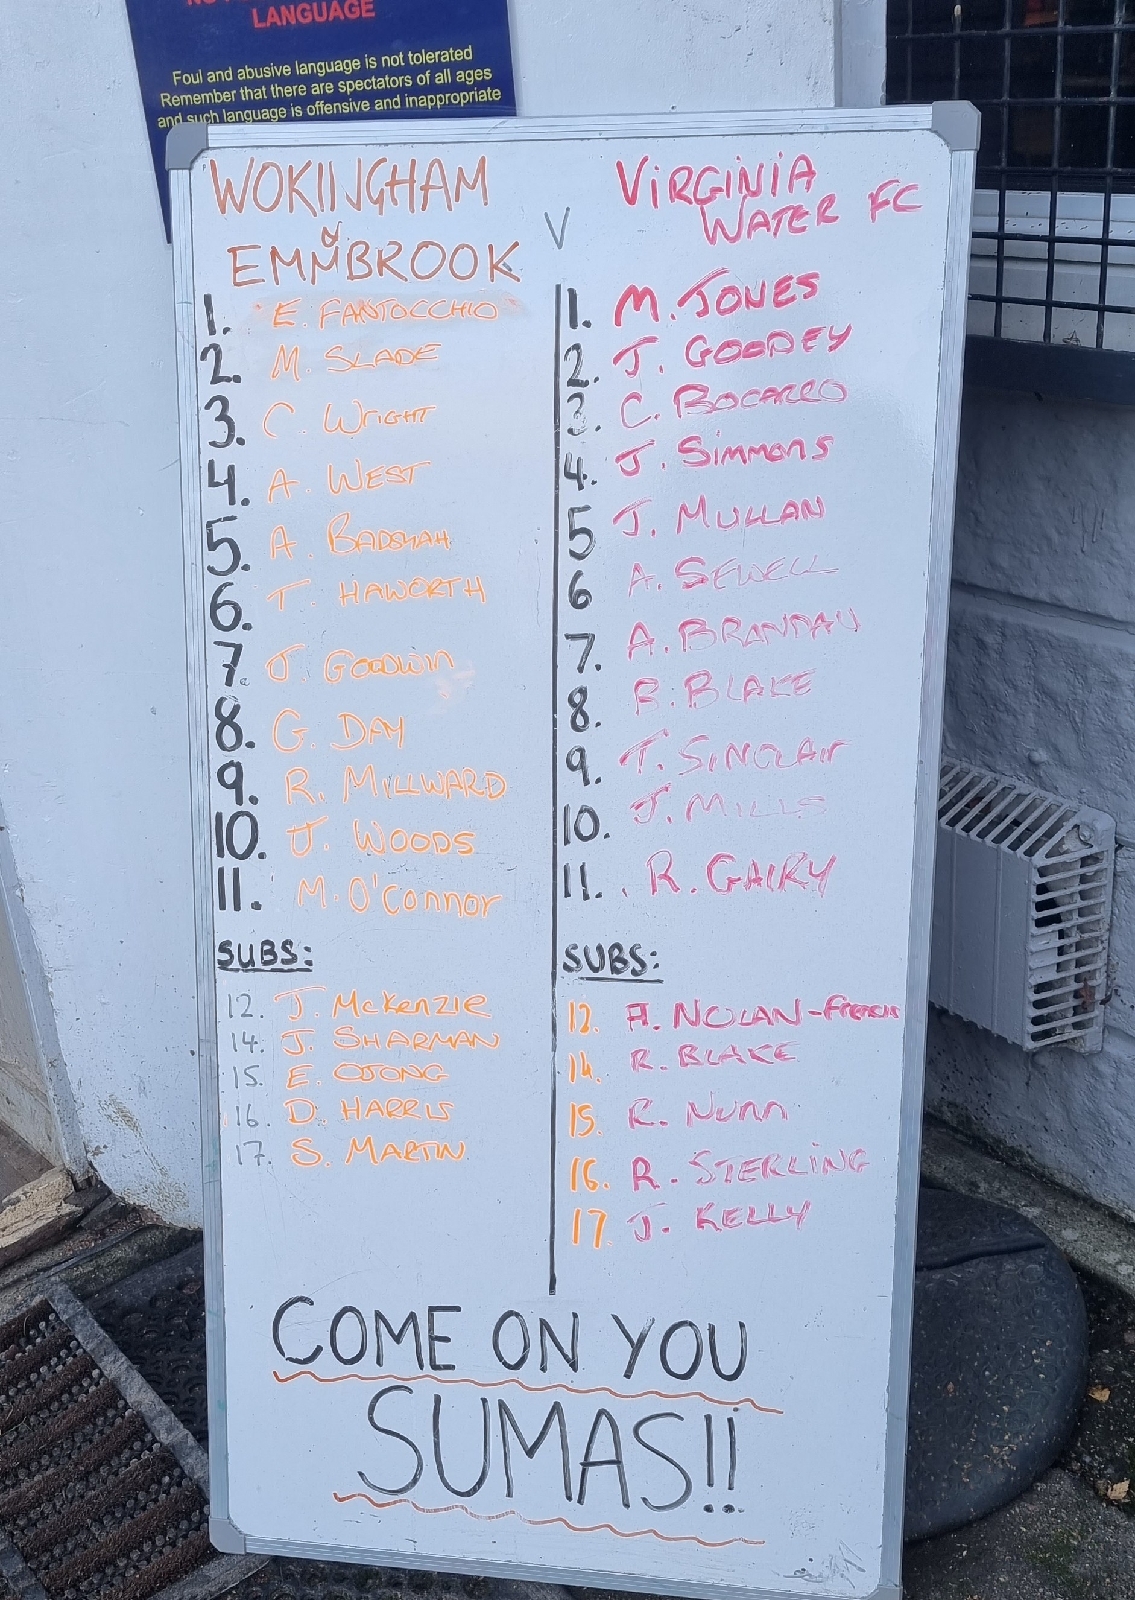 LANGUAGE
Foul and abusive language is not tolerated
Remember that there are spectators of all ages
and such language is offensive and inappropriate
WOKINGHAM
&
EMMBROOK
V
VIRGINIA
WATER FC
1. E. FANTOCCHIO
2. M. SLADE
3. C. WRIGHT
4. A. WEST
5. A. BADSHAH
6. T. HAWORTH
7. J. GOODWIN
8. G. DAY
9. R. MILLWARD
10. J. WOODS
11. M. O'Connor
SUBS:
12. J. McKenzie
14. J. SHARMAN
15. E. OJONG
16. D. HARRIS
17. S. MARTIN
1. M. JONES
2. J. GOODEY
3. C. BOCARRO
4. J. Simmons
5 J. MULLAN
6 A. SEWELL
7. A. BRANDAU
8. B. BLAKE
9. T. SINCLAIr
10. J. MILLS
11. R. GAIRY
SUBS:
12. A. NOLAN-Francis
14. R. BLAKE
15. R. Nunn
16. R. STERLING
17. J. KELLY
COME ON YOU
SUMAS!!